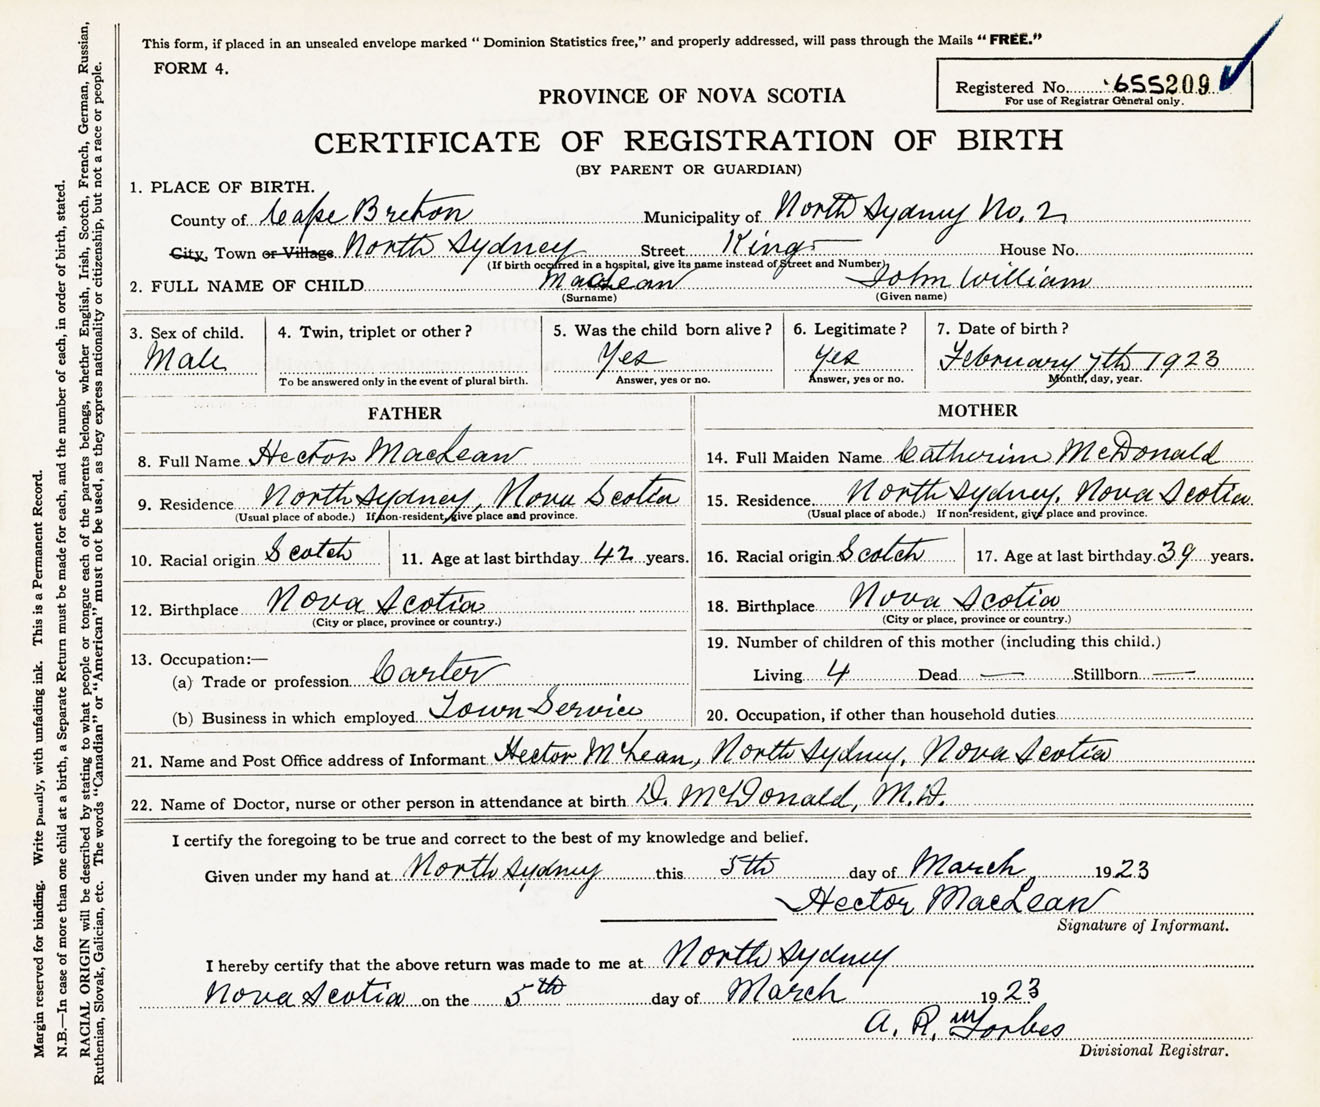 This form, if placed in an unsealed envelope marked "Dominion Statistics free," and properly addressed, will pass through the Mails "FREE."
FORM 4.
Registered No. 655209
For use of Registrar General only.
PROVINCE OF NOVA SCOTIA
CERTIFICATE OF REGISTRATION OF BIRTH
(BY PARENT OR GUARDIAN)
1. PLACE OF BIRTH.
County of Cape Breton Municipality of North Sydney No. 2
City, Town or Village North Sydney Street King House No.
(If birth occurred in a hospital, give its name instead of Street and Number)
2. FULL NAME OF CHILD MacLean John William
(Surname) (Given name)
3. Sex of child. 4. Twin, triplet or other? 5. Was the child born alive? 6. Legitimate? 7. Date of birth?
Male Yes Yes February 7th 1923
To be answered only in the event of plural birth. Answer, yes or no. Answer, yes or no. Month, day, year.
FATHER MOTHER
8. Full Name Hector MacLean 14. Full Maiden Name Catherine McDonald
9. Residence North Sydney, Nova Scotia 15. Residence North Sydney, Nova Scotia
(Usual place of abode.) If non-resident, give place and province. (Usual place of abode.) If non-resident, give place and province.
10. Racial origin Scotch 11. Age at last birthday 42 years. 16. Racial origin Scotch 17. Age at last birthday 39 years.
12. Birthplace Nova Scotia 18. Birthplace Nova Scotia
(City or place, province or country.) (City or place, province or country.)
13. Occupation:—
(a) Trade or profession Carter
(b) Business in which employed Town Service
19. Number of children of this mother (including this child.)
Living 4 Dead — Stillborn —
20. Occupation, if other than household duties
21. Name and Post Office address of Informant Hector McLean, North Sydney, Nova Scotia
22. Name of Doctor, nurse or other person in attendance at birth D. McDonald, M.D.
I certify the foregoing to be true and correct to the best of my knowledge and belief.
Given under my hand at North Sydney this 5th day of March 1923
Hector MacLean
Signature of Informant.
I hereby certify that the above return was made to me at North Sydney
Nova Scotia on the 5th day of March 1923
A. R. Forbes
Divisional Registrar.
Margin reserved for binding. Write plainly, with unfading ink. This is a Permanent Record.
N.B.—In case of more than one child at a birth, a Separate Return must be made for each, and the number of each, in order of birth, stated.
RACIAL ORIGIN will be described by stating to what people or tongue each of the parents belongs, whether English, Irish, Scotch, French, German, Russian,
Ruthenian, Slovak, Galician, etc. The words "Canadian" or "American" must not be used, as they express nationality or citizenship, but not a race or people.